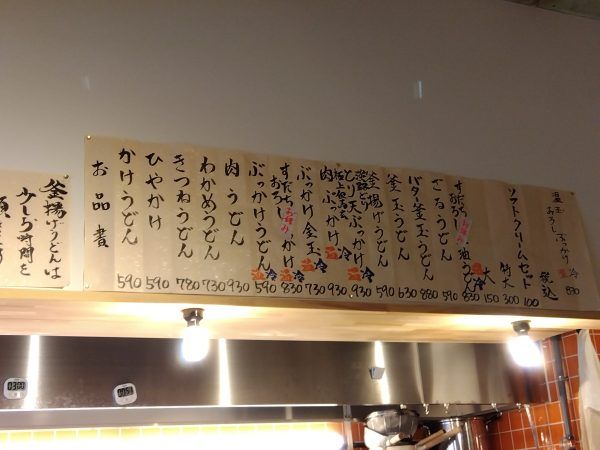 お品書
かけうどん 590
ひやかけ 590
きつねうどん 780
わかめうどん 730
肉うどん 930
ぶっかけうどん 温 冷 590
すだちおろしぶっかけ 温 冷 830
ぶっかけ釜玉 730
肉ぶっかけ 温 冷 930
とり天ぶっかけ 温 冷 930
釜揚げうどん 590
釜玉うどん 630
バター釜玉うどん 880
ざるうどん 590
すだちおろし 醤油うどん 温 冷 830
大 150
特大 300
ソフトクリームセット 100
税込
温玉おろしぶっかけ 温 冷 830
釜揚げうどんは
少しお時間を